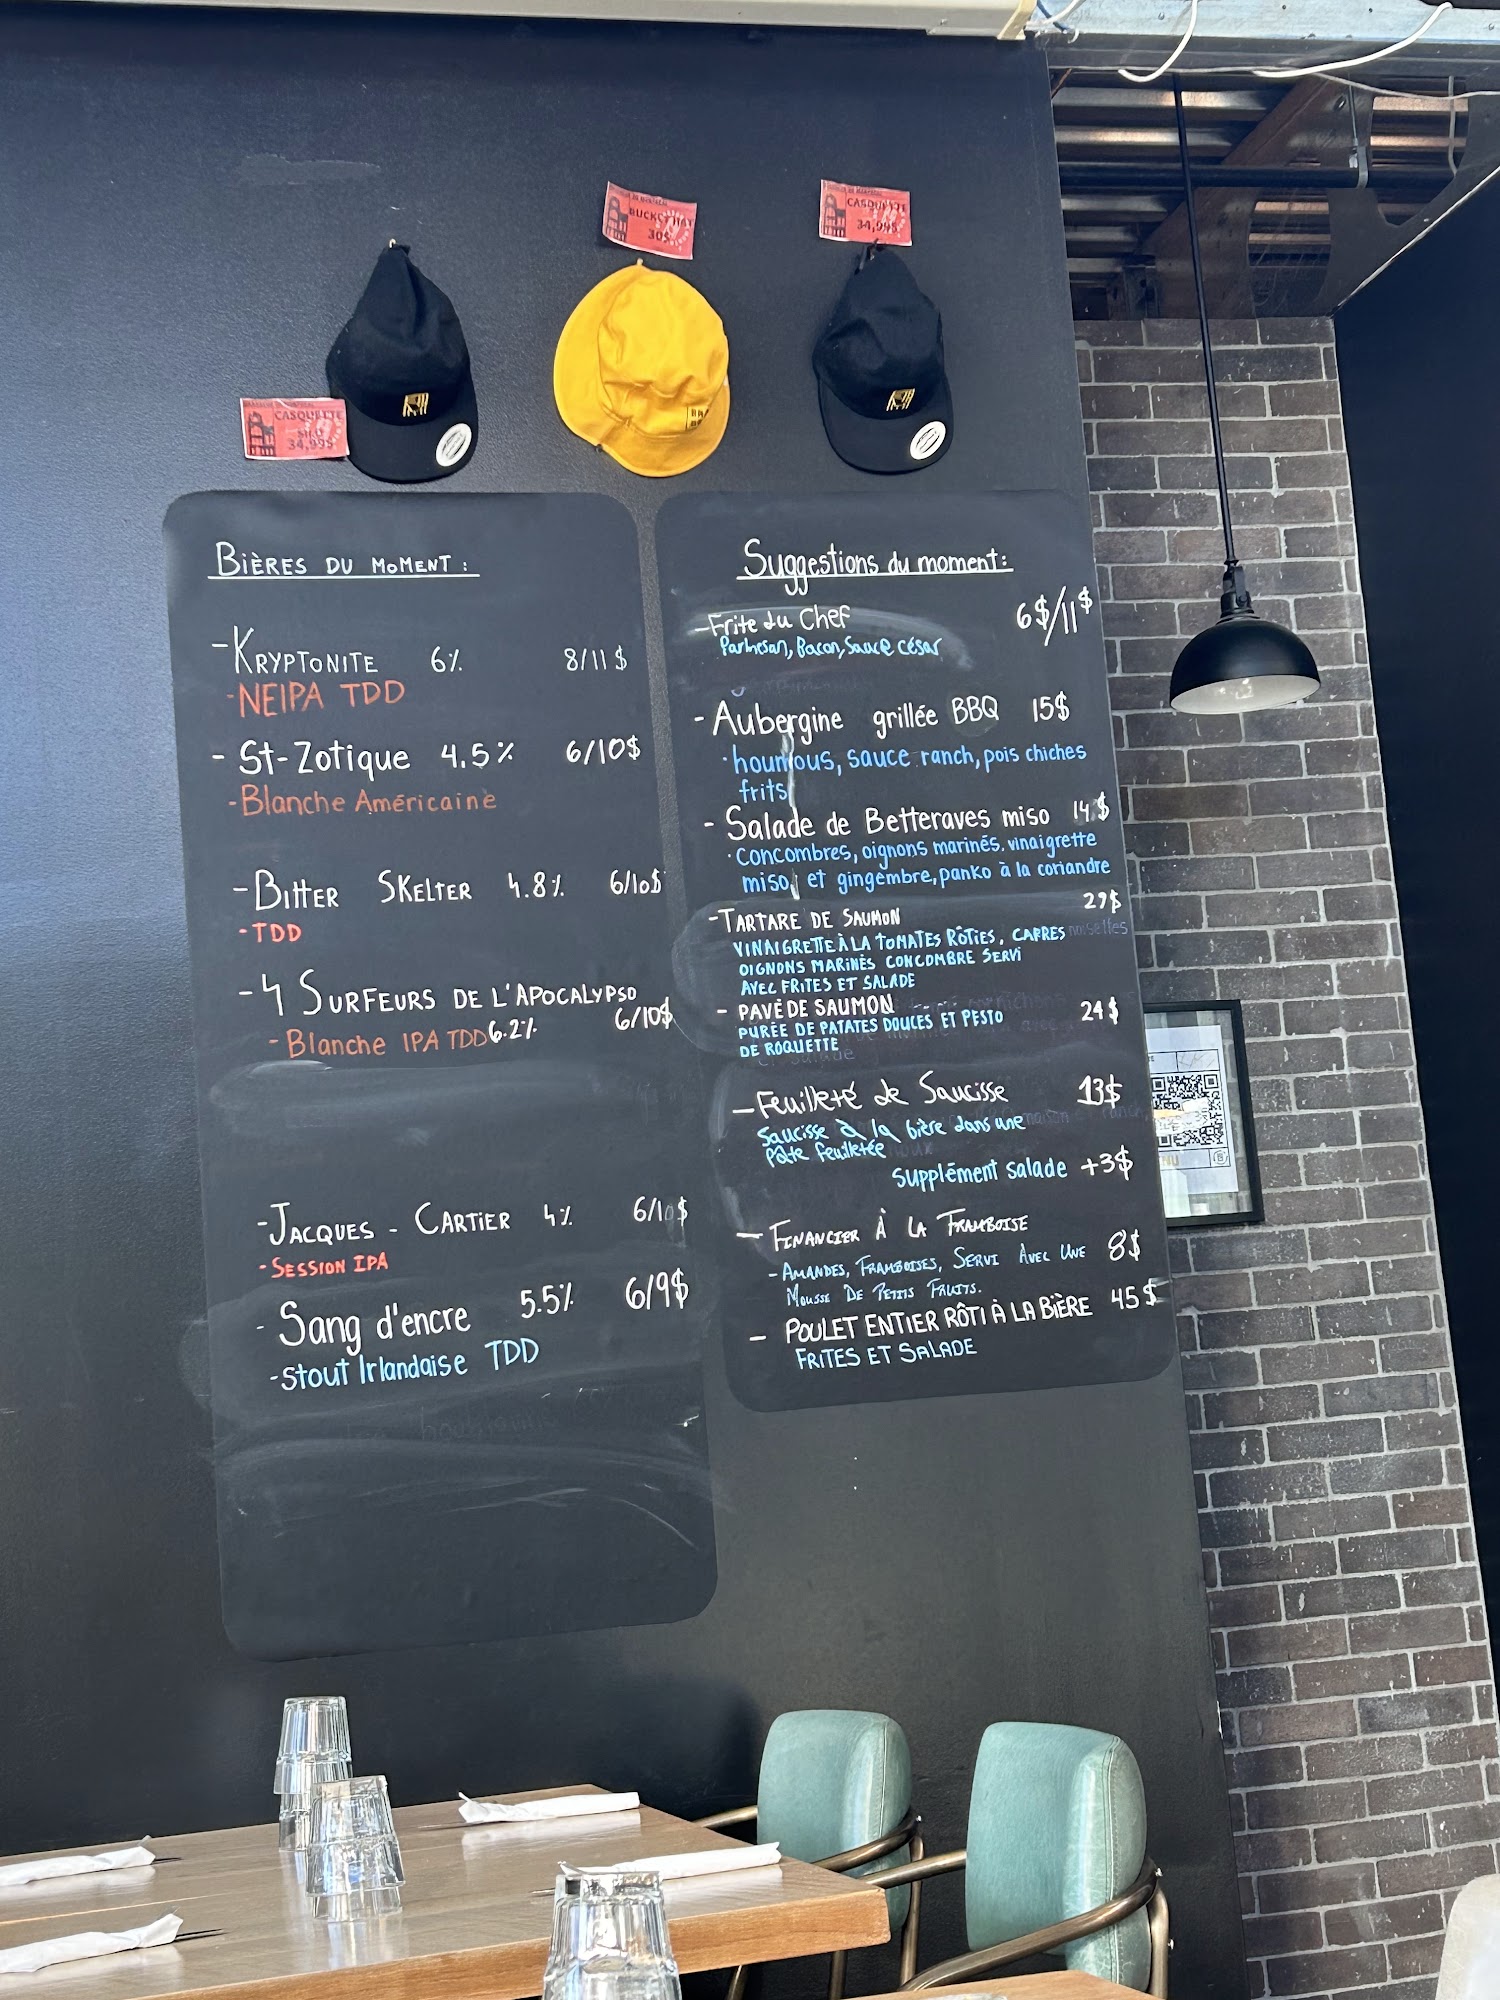 BUCKET HAT
30$
CASQUETTE
34,99$
CASQUETTE
34,99$
BIÈRES DU MOMENT :
- KRYPTONITE 6% 8/11$
- NEIPA TDD
- St-Zotique 4.5% 6/10$
- Blanche Américaine
- BITTER SKELTER 4.8% 6/10$
- TDD
- 4 SURFEURS DE L'APOCALYPSO
- Blanche IPA TDD 6.2% 6/10$
- JACQUES - CARTIER 4% 6/10$
- SESSION IPA
- Sang d'encre 5.5% 6/9$
- stout Irlandaise TDD
Suggestions du moment:
- Frite du Chef 6$/11$
Parmesan, Bacon, Sauce césar
- Aubergine grillée BBQ 15$
· houmous, sauce ranch, pois chiches
frits
- Salade de Betteraves miso 14$
· concombres, oignons marinés, vinaigrette
miso, et gingembre, panko à la coriandre
- TARTARE DE SAUMON 29$
VINAIGRETTE À LA TOMATES RÔTIES, CAPRES
OIGNONS MARINÉS CONCOMBRE SERVI
AVEC FRITES ET SALADE
- PAVÉ DE SAUMON 24$
PURÉE DE PATATES DOUCES ET PESTO
DE ROQUETTE
- Feuilleté de Saucisse 13$
Saucisse à la bière dans une
pâte feuilletée
Supplément salade +3$
- FINANCIER À LA FRAMBOISE
- AMANDES, FRAMBOISES, SERVI AVEC UNE 8$
MOUSSE DE PETITS FRUITS.
- POULET ENTIER RÔTI À LA BIÈRE 45$
FRITES ET SALADE